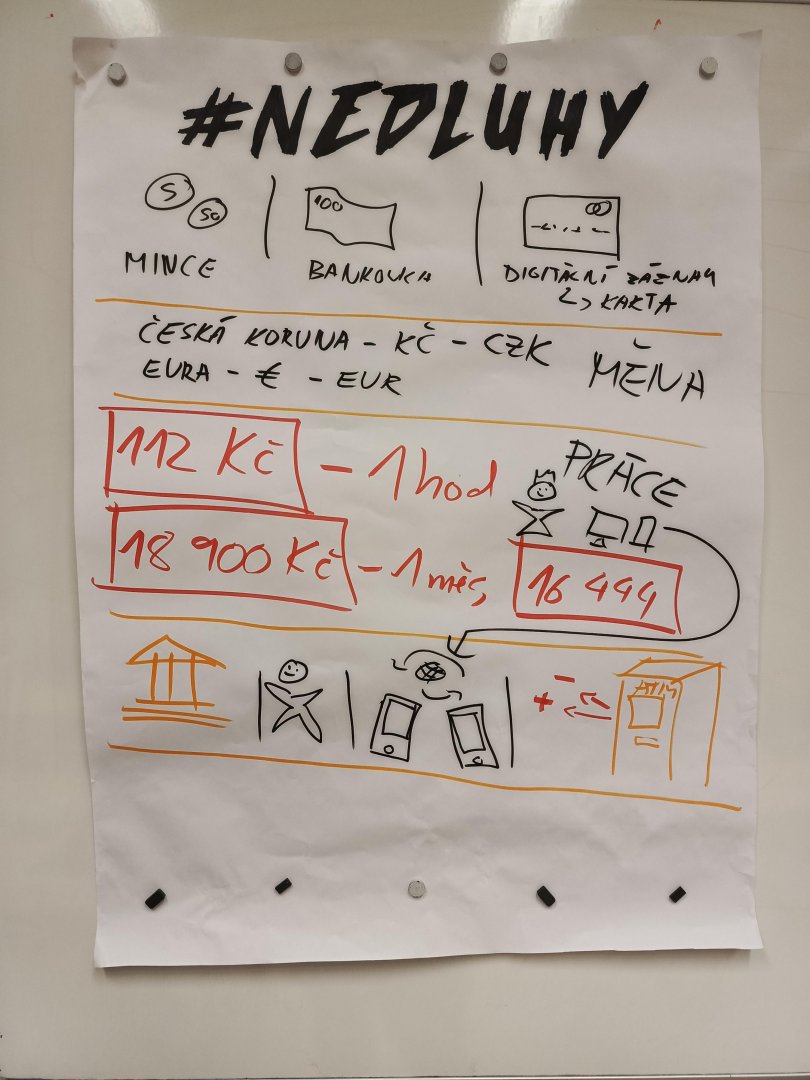 #NEDLUHY
5
50
100
MINCE
BANKOVKA
DIGITÁLNÍ ZÁZNAM
↳ KARTA
ČESKÁ KORUNA - KČ - CZK
EURA - € - EUR
MĚNA
112 Kč - 1 hod
PRÁCE
18 900 Kč - 1 měs,
16 444
ATM
+ -